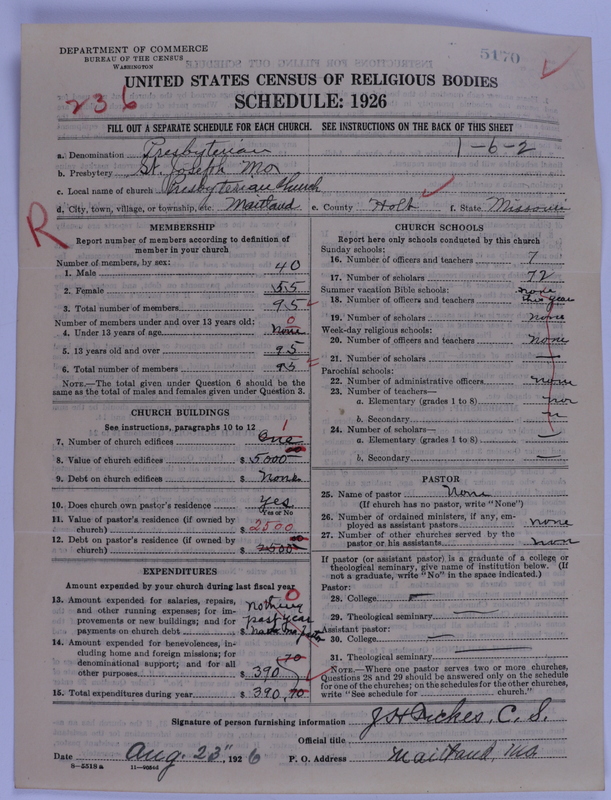 DEPARTMENT OF COMMERCE
BUREAU OF THE CENSUS
WASHINGTON
5170
UNITED STATES CENSUS OF RELIGIOUS BODIES
236
SCHEDULE: 1926
FILL OUT A SEPARATE SCHEDULE FOR EACH CHURCH. SEE INSTRUCTIONS ON THE BACK OF THIS SHEET
a. Denomination Presbyterian 1-6-2
b. Presbytery St. Joseph Mo
c. Local name of church Presbyterian Church
d. City, town, village, or township, etc. Maitland e. County Holt f. State Missouri
R
MEMBERSHIP
Report number of members according to definition of
member in your church
Number of members, by sex:
1. Male 40
2. Female 55
3. Total number of members 95
Number of members under and over 13 years old: 0
4. Under 13 years of age None
5. 13 years old and over 95
6. Total number of members 95
NOTE.—The total given under Question 6 should be
the same as the total of males and females given under Question 3.
CHURCH BUILDINGS
See instructions, paragraphs 10 to 12 1
7. Number of church edifices One
8. Value of church edifices $ 5000
9. Debt on church edifices $ None
10. Does church own pastor's residence Yes
Yes or No
11. Value of pastor's residence (if owned by
church) $ 2500
12. Debt on pastor's residence (if owned by
church) $ 2500
EXPENDITURES
Amount expended by your church during last fiscal year
13. Amount expended for salaries, repairs, 0
and other running expenses; for im- nothing
provements or new buildings; and for past year
payments on church debt $
14. Amount expended for benevolences, in-
cluding home and foreign missions; for
denominational support; and for all 70
other purposes $ 390
15. Total expenditures during year $ 390.70
CHURCH SCHOOLS
Report here only schools conducted by this church
Sunday schools:
16. Number of officers and teachers 7
17. Number of scholars 72
Summer vacation Bible schools: none
18. Number of officers and teachers this year
19. Number of scholars none
Week-day religious schools:
20. Number of officers and teachers none
21. Number of scholars —
Parochial schools:
22. Number of administrative officers none
23. Number of teachers—
a. Elementary (grades 1 to 8)
b. Secondary
24. Number of scholars—
a. Elementary (grades 1 to 8) —
b. Secondary —
PASTOR
25. Name of pastor None
(If church has no pastor, write "None")
26. Number of ordained ministers, if any, em-
ployed as assistant pastors none
27. Number of other churches served by the
pastor or his assistants
If pastor (or assistant pastor) is a graduate of a college or
theological seminary, give name of institution below. (If
not a graduate, write "No" in the space indicated.)
Pastor:
28. College —
29. Theological seminary —
Assistant pastor:
30. College —
31. Theological seminary —
NOTE.—Where one pastor serves two or more churches,
Questions 28 and 29 should be answered only on the schedule
for one of the churches; on the schedules for the other churches,
write "See schedule for church."
Signature of person furnishing information J H Dickes, C. S.
Official title
Date Aug. 23", 1926 P. O. Address Maitland, Mo
8—5518 a